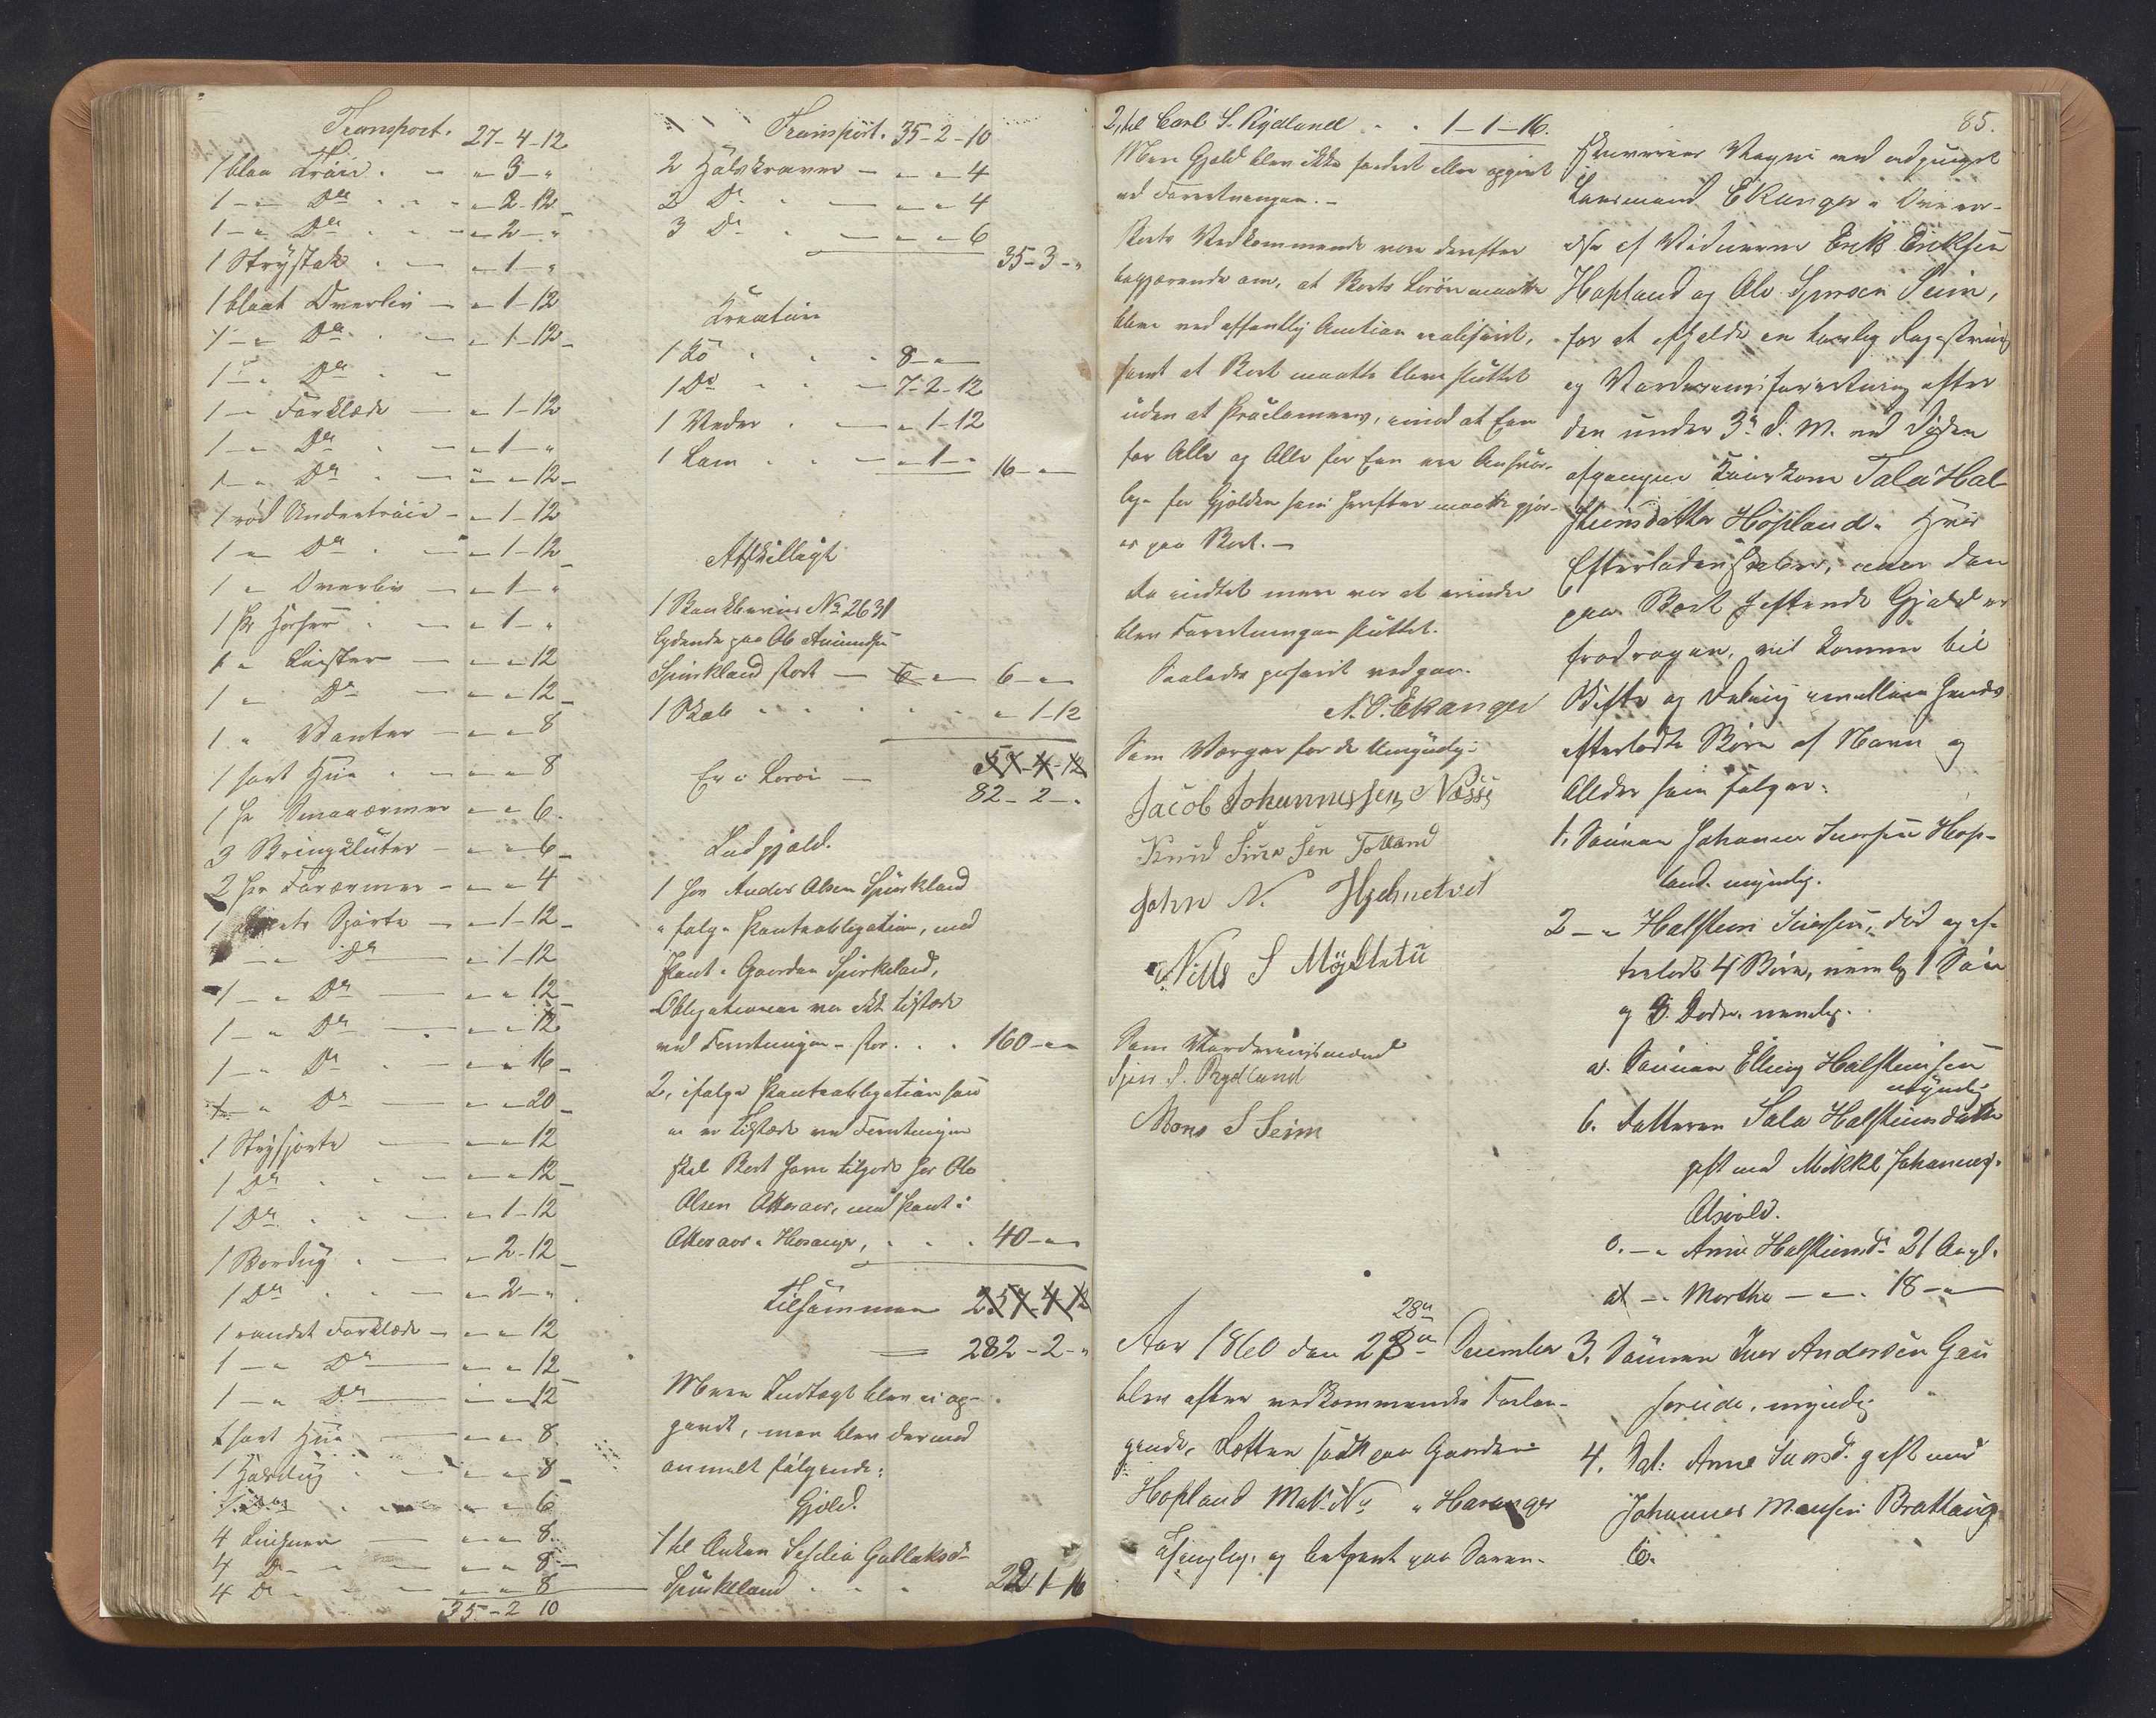 Transport. 27-4-12
1 blaa Trøie - " 3 - "
1 - " Do - " 2-12
1 - " Do - " 2 - "
1 Strystak - " 1 - "
1 blaat Overliv - " 1-12
1 - " Do - " 1-12
1 - " Do
1 - " Forklæde - " 1-12
1 - " Do - " 1 - "
1 - " Do - " " 12
1 rød Undertrøie - " 1-12
1 - " Do - " 1-12
1 " Overliv - " 1 - "
1 Pr Hoser - " 1 - "
1 " Læister - " " 12
1 " Do - " " 12
1 " Vanter - " " 8
1 sort Hue - " " 8
1 Pr Smaaærmer " " 6
3 Bringkluter - " " 6
2 Par Forærmer - " " 4
1 Skjorte - " 1-12
- " Do - " 1-12
1 - " Do - " " 12
1 - " Do - " " 12
1 - " Do - " " 16
1 - " Do - " " 20
1 Strysjorte - " " 12
1 Do - " " 12
1 Do - " 1-12
1 Bordug - " 2-12
1 Do - " 2 - "
1 randet Forklæde - " " 12
1 - " Do - " " 12
1 - " Do - " " 12
1 sort Hue - " " 8
1 - " " 8
1 Do - " " 6
4 - " " 8
4 Do - " " 8
4 Do - " " 8
35-2 10
Transport. 35-2-10
2 Halskraver - " " 4
2 Do - " " 4
3 Do - " " 6
35-3-"
Kreaturer
1 Ko 8 - "
1 Do 7-2-12
1 Veder - " 1-12
1 Lam - " 1 - " 16 - "
Adskilligt
1 Bankbevis No 2631
lydende paa Ole Amundsen
Spurkland stort - 6 - " 6 - "
1 Skab " 1-12
Er i Løsøre - 57-4-12
82-2-"
Indgjæld.
1 hos Anders Olsen Spurkland
ifølge Panteobligation, med
Pant i Gaarden Spurkeland,
Obligationen var ikke tilstæde
ved Forretningen - stor. 160 - "
2, ifølge Panteobligation som
ei er tilstæde ved Forretningen
skal Boet have tilgode hos Ole
Olsen Atteraas, med Pant i
Atteraas i Hosanger, 40 - "
Tilsammen 257-4-12
282-2-"
Mere Indtægt blev ei op-
givet, men blev dermed
anmeldt følgende:
Gjæld.
1 til Enken
Spurkeland 22 1-16
2, til Carl S. Rydland 1-1-16.
Mere Gjæld blev ikke fordret eller opgivet
ved Forretningen. -
Boets Vedkommende vare derefter
begjærende om, at Boets Løsøre maatte
blive ved offentlig Auction realiseret,
samt at Boet maatte blive sluttet
uden at Proclameres, imod at Een
for Alle og Alle for Een ere Ansvar-
lige for Gjælden som herefter maatte gjør-
es paa Boet. -
Da indtet mere var at erindre
blev Forretningen sluttet.
Saaledes passeret vedgaar.
N. O. Ekanger
Som Værger for de Umyndige
Jacob Johannessen Næsse
Knud Tolland
John N. Hjelmetvet
Nills S Mykletu
Som Vurderingsmænd
Sjur S. Rydland
Mons S Seim
28de
Aar 1860 den 28de December
blev efter vedkommendes Forlan-
gende, Retten sadt paa Gaarden
Hopland Mat: No " Hosanger
Thinglag, og betjent paa Soren-
85.
skriverens Vegne ved adjungeret
Lensmand Ekanger i Overvæ-
relse af Vidnerne Erik Eriksen
Hopland og Ole Sjursen Seim,
for at afholde en lovlig Registrerings
og Vurderingsforretning efter
den under 3de d. M. ved Døden
afgangne Kaarkone Sala Hal-
steinsdatter Hopland. Hvis
Efterladenskaber, naar den
paa Boet heftende Gjæld er
fradragen, vil komme til
Skifte og Deling imellem hendes
efterladte Børn af Navn og
Alder som følger:
1. Sønnen Johannes Iversen Hop-
land myndig.
2 - " Halsten Iversen, død og ef-
terladt 4 Børn, nemlig 1 Søn
og 3 Døtre, nemlig.
a. Sønnen Elling Halsteinsen
myndig
b. Datteren Sala Halsteinsdatter
gift med Mikkel Johannes.
c. - " Anna Halsteinsdr 21 Aar gl.
d - " Martha - " - 18 - "
3. Sønnen Iver Andersen
myndig
4. Dat: Anne Iversd. gift med
Johannes Monsen Brattaug